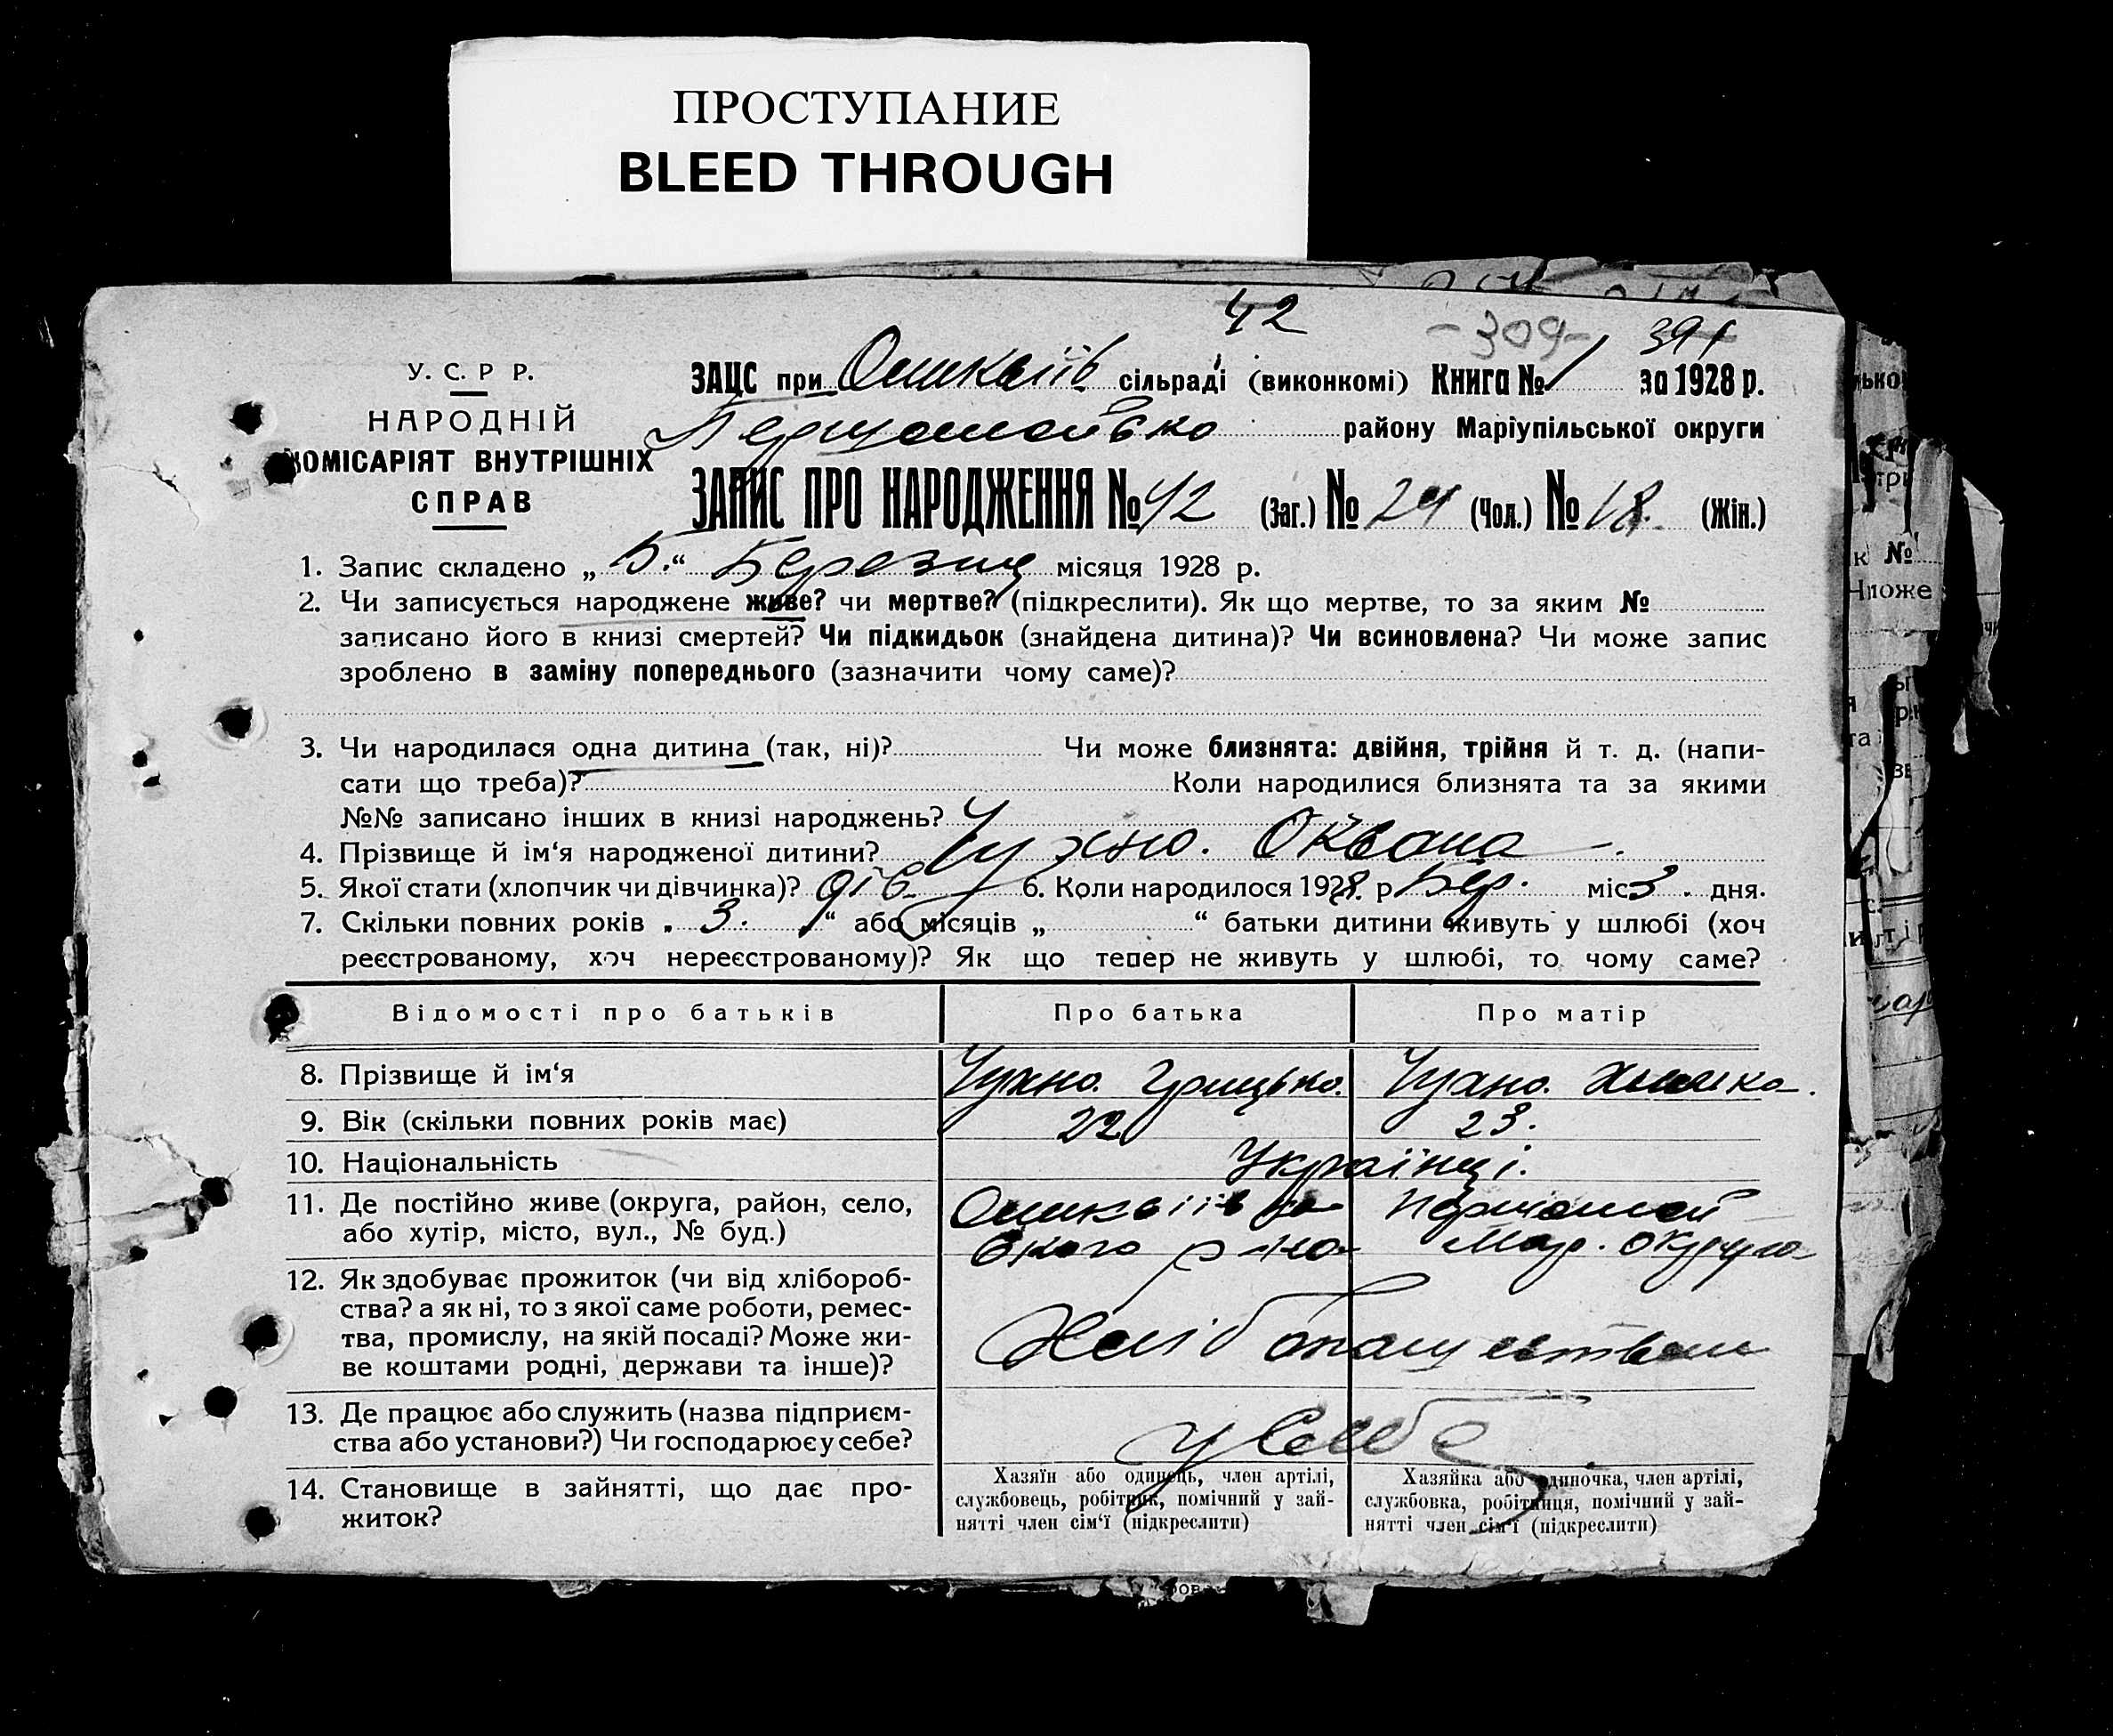 ПРОСТУПАНИЕ
BLEED THROUGH
42
-309- 391
У. С. Р Р.
НАРОДНІЙ
КОМІСАРІЯТ ВНУТРІШНІХ
СПРАВ
ЗАЦС при сільраді (виконкомі) Книга № 1 за 1928 р.
району Маріупільської округи
ЗАПИС ПРО НАРОДЖЕННЯ № 42 (Заг.) № 24 (Чол.) № 18. (Жін.)
1. Запис складено „ 5. “ Березня місяця 1928 р.
2. Чи записується народжене живе? чи мертве? (підкреслити). Як що мертве, то за яким №
записано його в книзі смертей? Чи підкидьок (знайдена дитина)? Чи всиновлена? Чи може запис
зроблено в заміну попереднього (зазначити чому саме)?
3. Чи народилася одна дитина (так, ні)? Чи може близнята: двійня, трійня й т. д. (напи-
сати що треба)? Коли народилися близнята та за якими
№№ записано інших в книзі народжень?
4. Прізвище й ім‘я народженої дитини? Чухно. Оксана
5. Якої стати (хлопчик чи дівчинка)? дів. 6. Коли народилось 1928. р. Бер. міс 3. дня.
7. Скільки повних років „ 3. “ або місяців „ “ батьки дитини живуть у шлюбі (хоч
реєстрованому, хоч нереєстрованому)? Як що тепер не живуть у шлюбі, то чому саме?
Відомості про батьків Про батька Про матір
8. Прізвище й ім‘я Чухно. Грицько. Чухно.
9. Вік (скільки повних років має) 22 23.
10. Національність Українці.
11. Де постійно живе (округа, район, село,
або хутір, місто, вул., № буд.) Мар. округа
12. Як здобуває прожиток (чи від хлібороб-
ства? а як ні, то з якої саме роботи, ремес-
тва, промислу, на якій посаді? Може жи-
ве коштами родні, держави та інше)?
13. Де працює або служить (назва підприєм-
ства або установи?) Чи господарює у себе? у себе
14. Становище в зайнятті, що дає про-
житок?
Хазяїн або одинець, член артілі,
службовець, робітник, помічний у зай-
нятті член сім‘ї (підкреслити)
Хазяйка або одиночка, член артілі,
службовка, робітниця, помічний у зай-
нятті член сім‘ї (підкреслити)